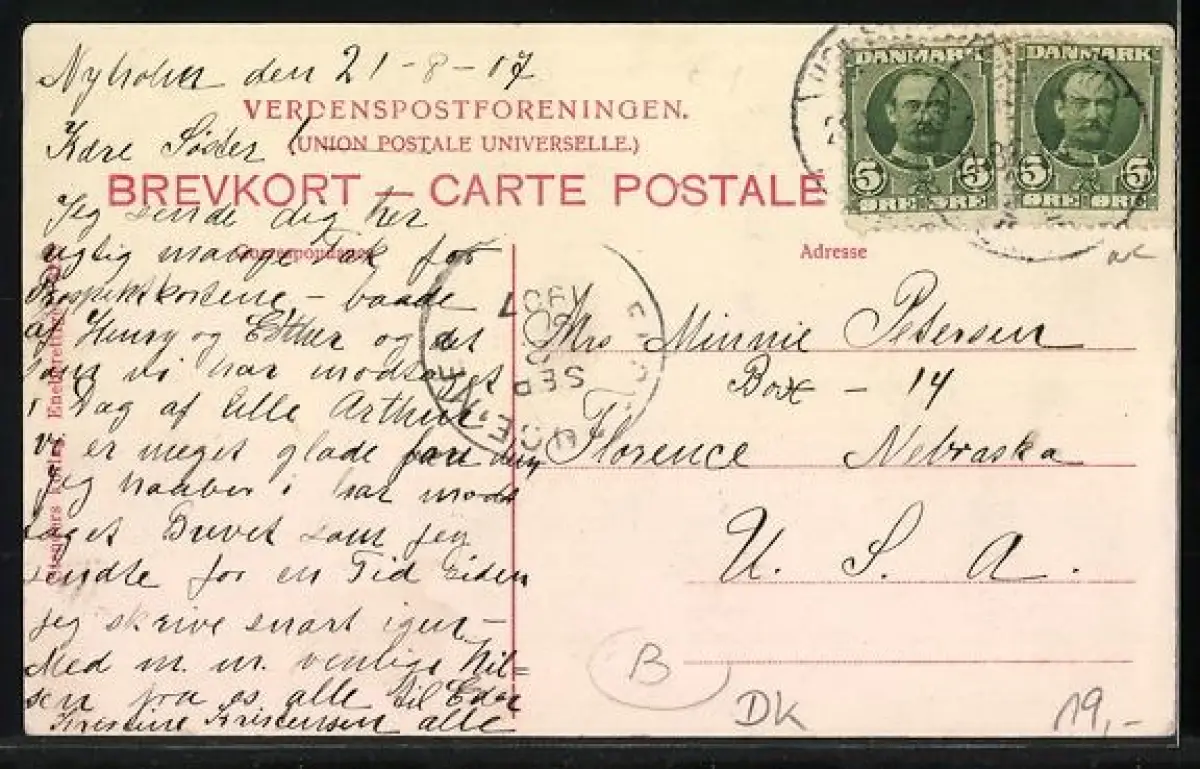 Nyholm den 21-8-07
VERDENSPOSTFORENINGEN.
(UNION POSTALE UNIVERSELLE.)
BREVKORT — CARTE POSTALE
Kære Søster!
Jeg sende dig her
rigtig mange Tak for
Prospektkortene – baade
af Henry og Esther og det
som vi har modtaget
i Dag af lille Arthur.
vi er meget glade for dem,
jeg haaber i har mod=
taget Brevet som jeg
sendte for en Tid siden
jeg skrive snart igen –
Med m. m. venlige Hil=
sen fra os alle til Eder
Kristine Kristensen alle
Correspondance
Adresse
Eneberettiget
DANMARK
5 5
ØRE ØRE
DANMARK
5 5
ØRE ØRE
SEP
1907
Mrs Minnie Petersen
Box – 14
Florence Nebraska
U. S. A.
B
DK
19,-